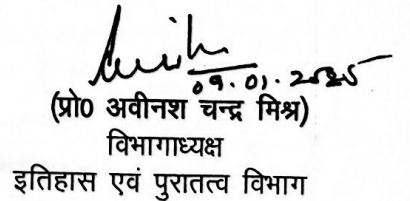 09.01.2025
(प्रो0 अवीनश चन्द्र मिश्र)
विभागाध्यक्ष
इतिहास एवं पुरातत्व विभाग